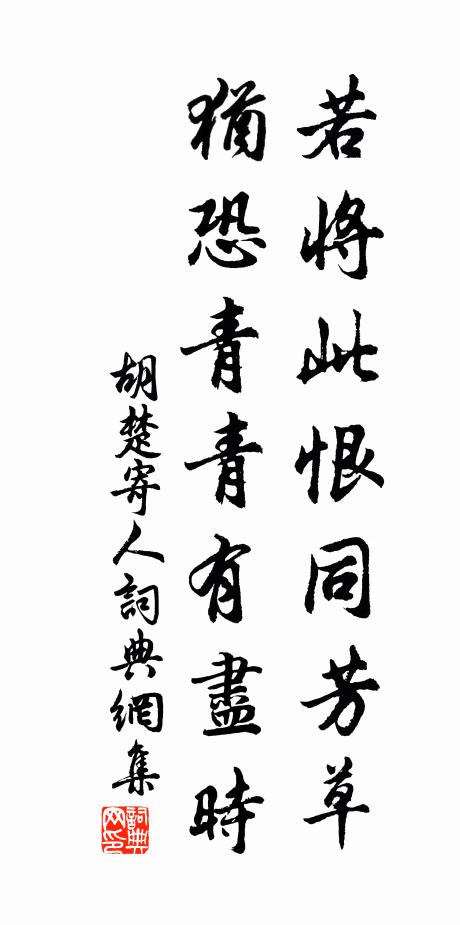 若將此恨同芳草
猶恐青青有盡時
胡楚寄人詞典網集
詞典网印